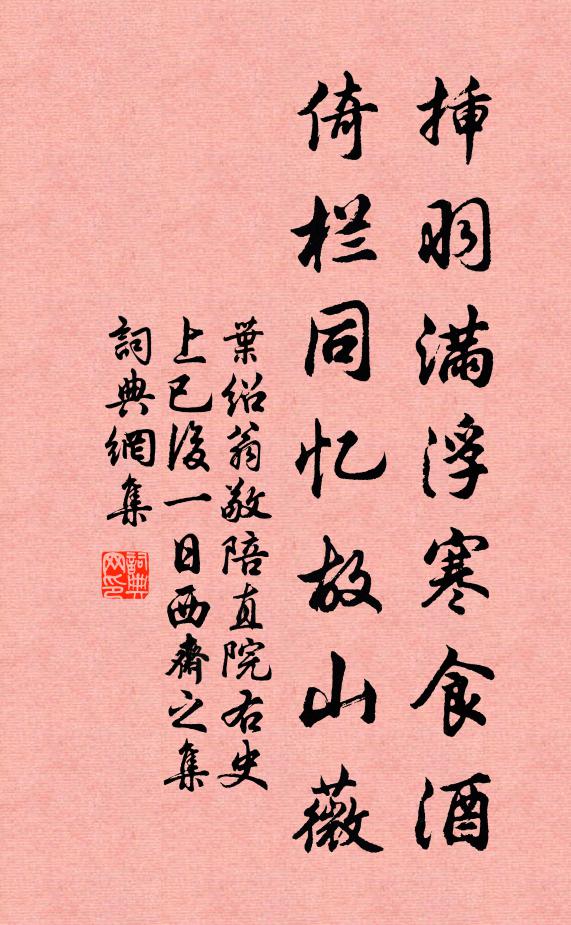 挿羽满浮寒食酒
倚栏同忆故山薇
葉紹翁敬陪直院右史
上巳後一日西齋之集
詞典網集
詞典网印